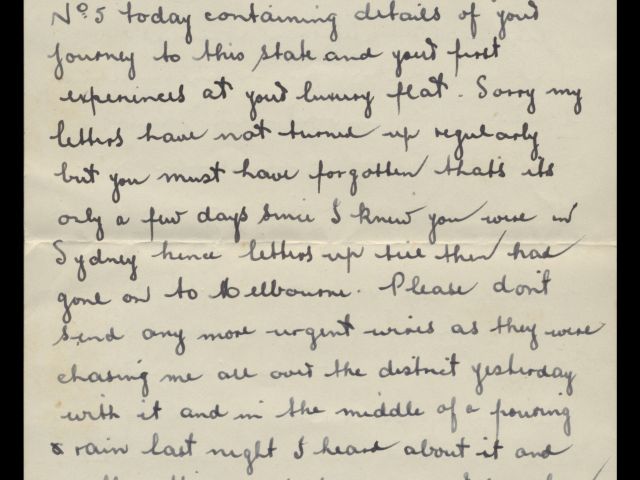 Nº 5 today containing details of your
Journey to this State and your first
experinces at your luxury flat. Sorry my
letters have not turned up regularly
but you must have forgotten that's its
only a few days since I knew you were in
Sydney hence letters up till then had
gone on to Melbourne. Please don't
send any more urgent wires as they were
chasing me all over the district yesterday
with it and in the middle of a pouring
rain last night I heard about it and